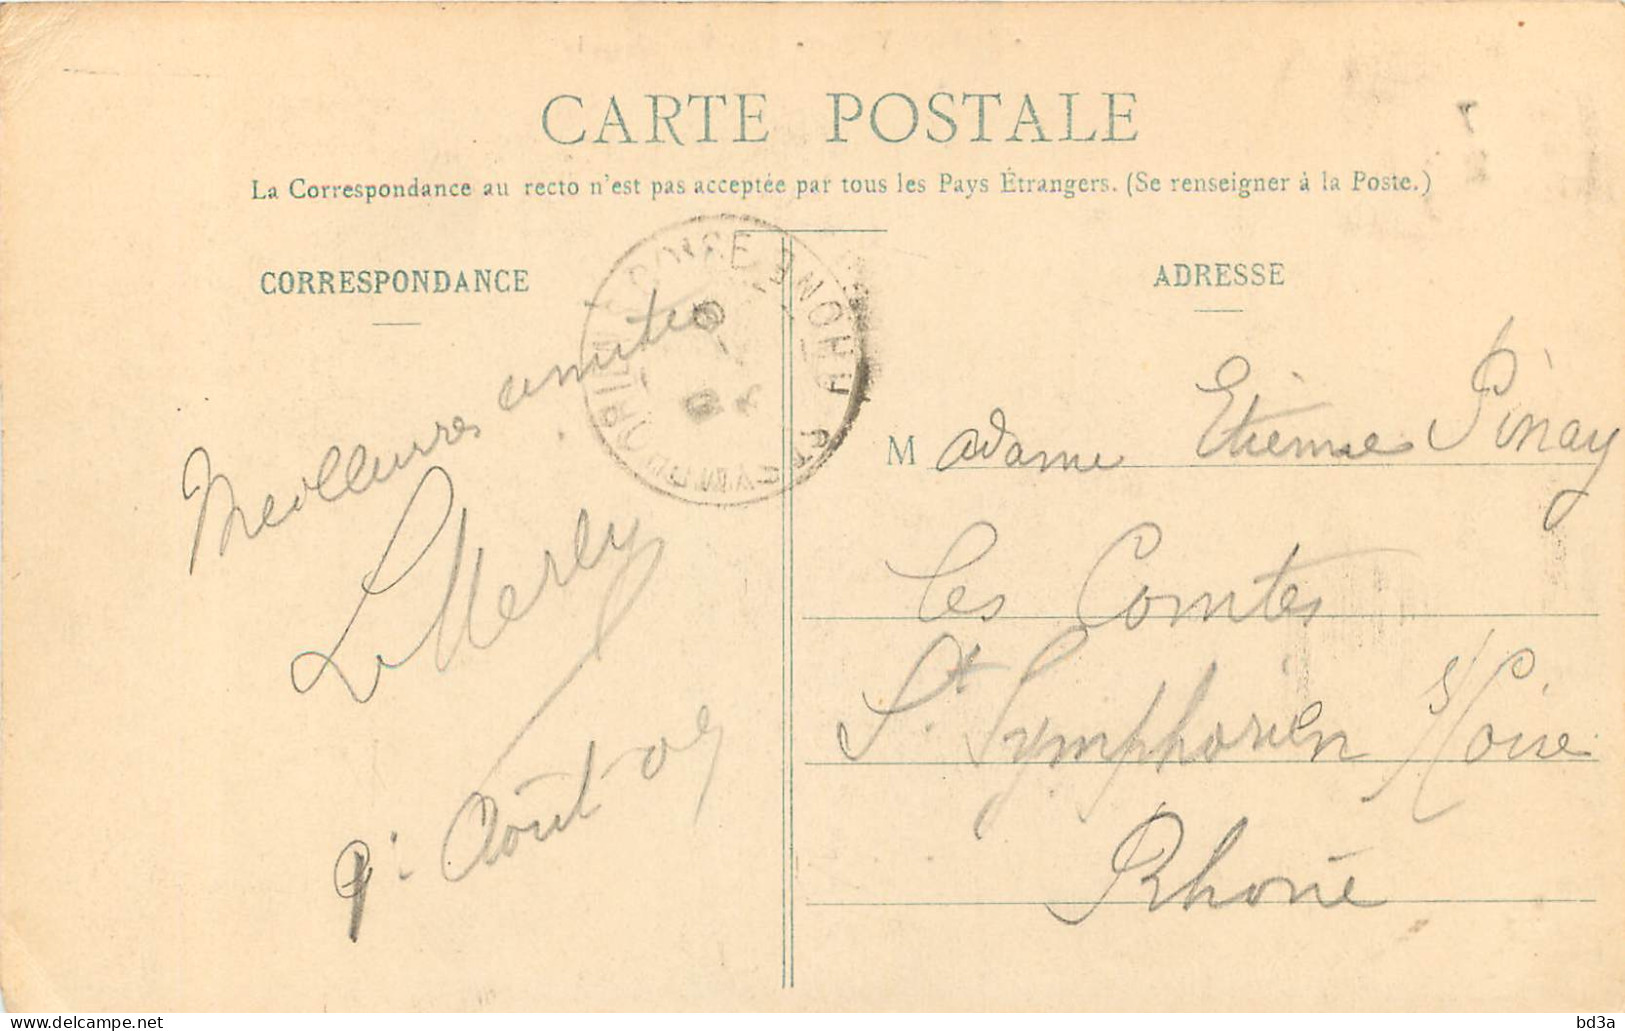 CARTE POSTALE
La Correspondance au recto n'est pas acceptée par tous les Pays Étrangers. (Se renseigner à la Poste.)
CORRESPONDANCE
Meilleures amitiés
Merly
9 Août 09
ADRESSE
Madame Etienne Pinay
Les Comtes
St Symphorien s/ Coise
Rhône
RHONE
bd3a